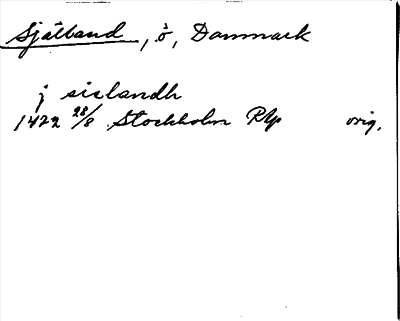 Själland, ö, Danmark
j sislandh
1422 28/8 Stockholm RAp orig.